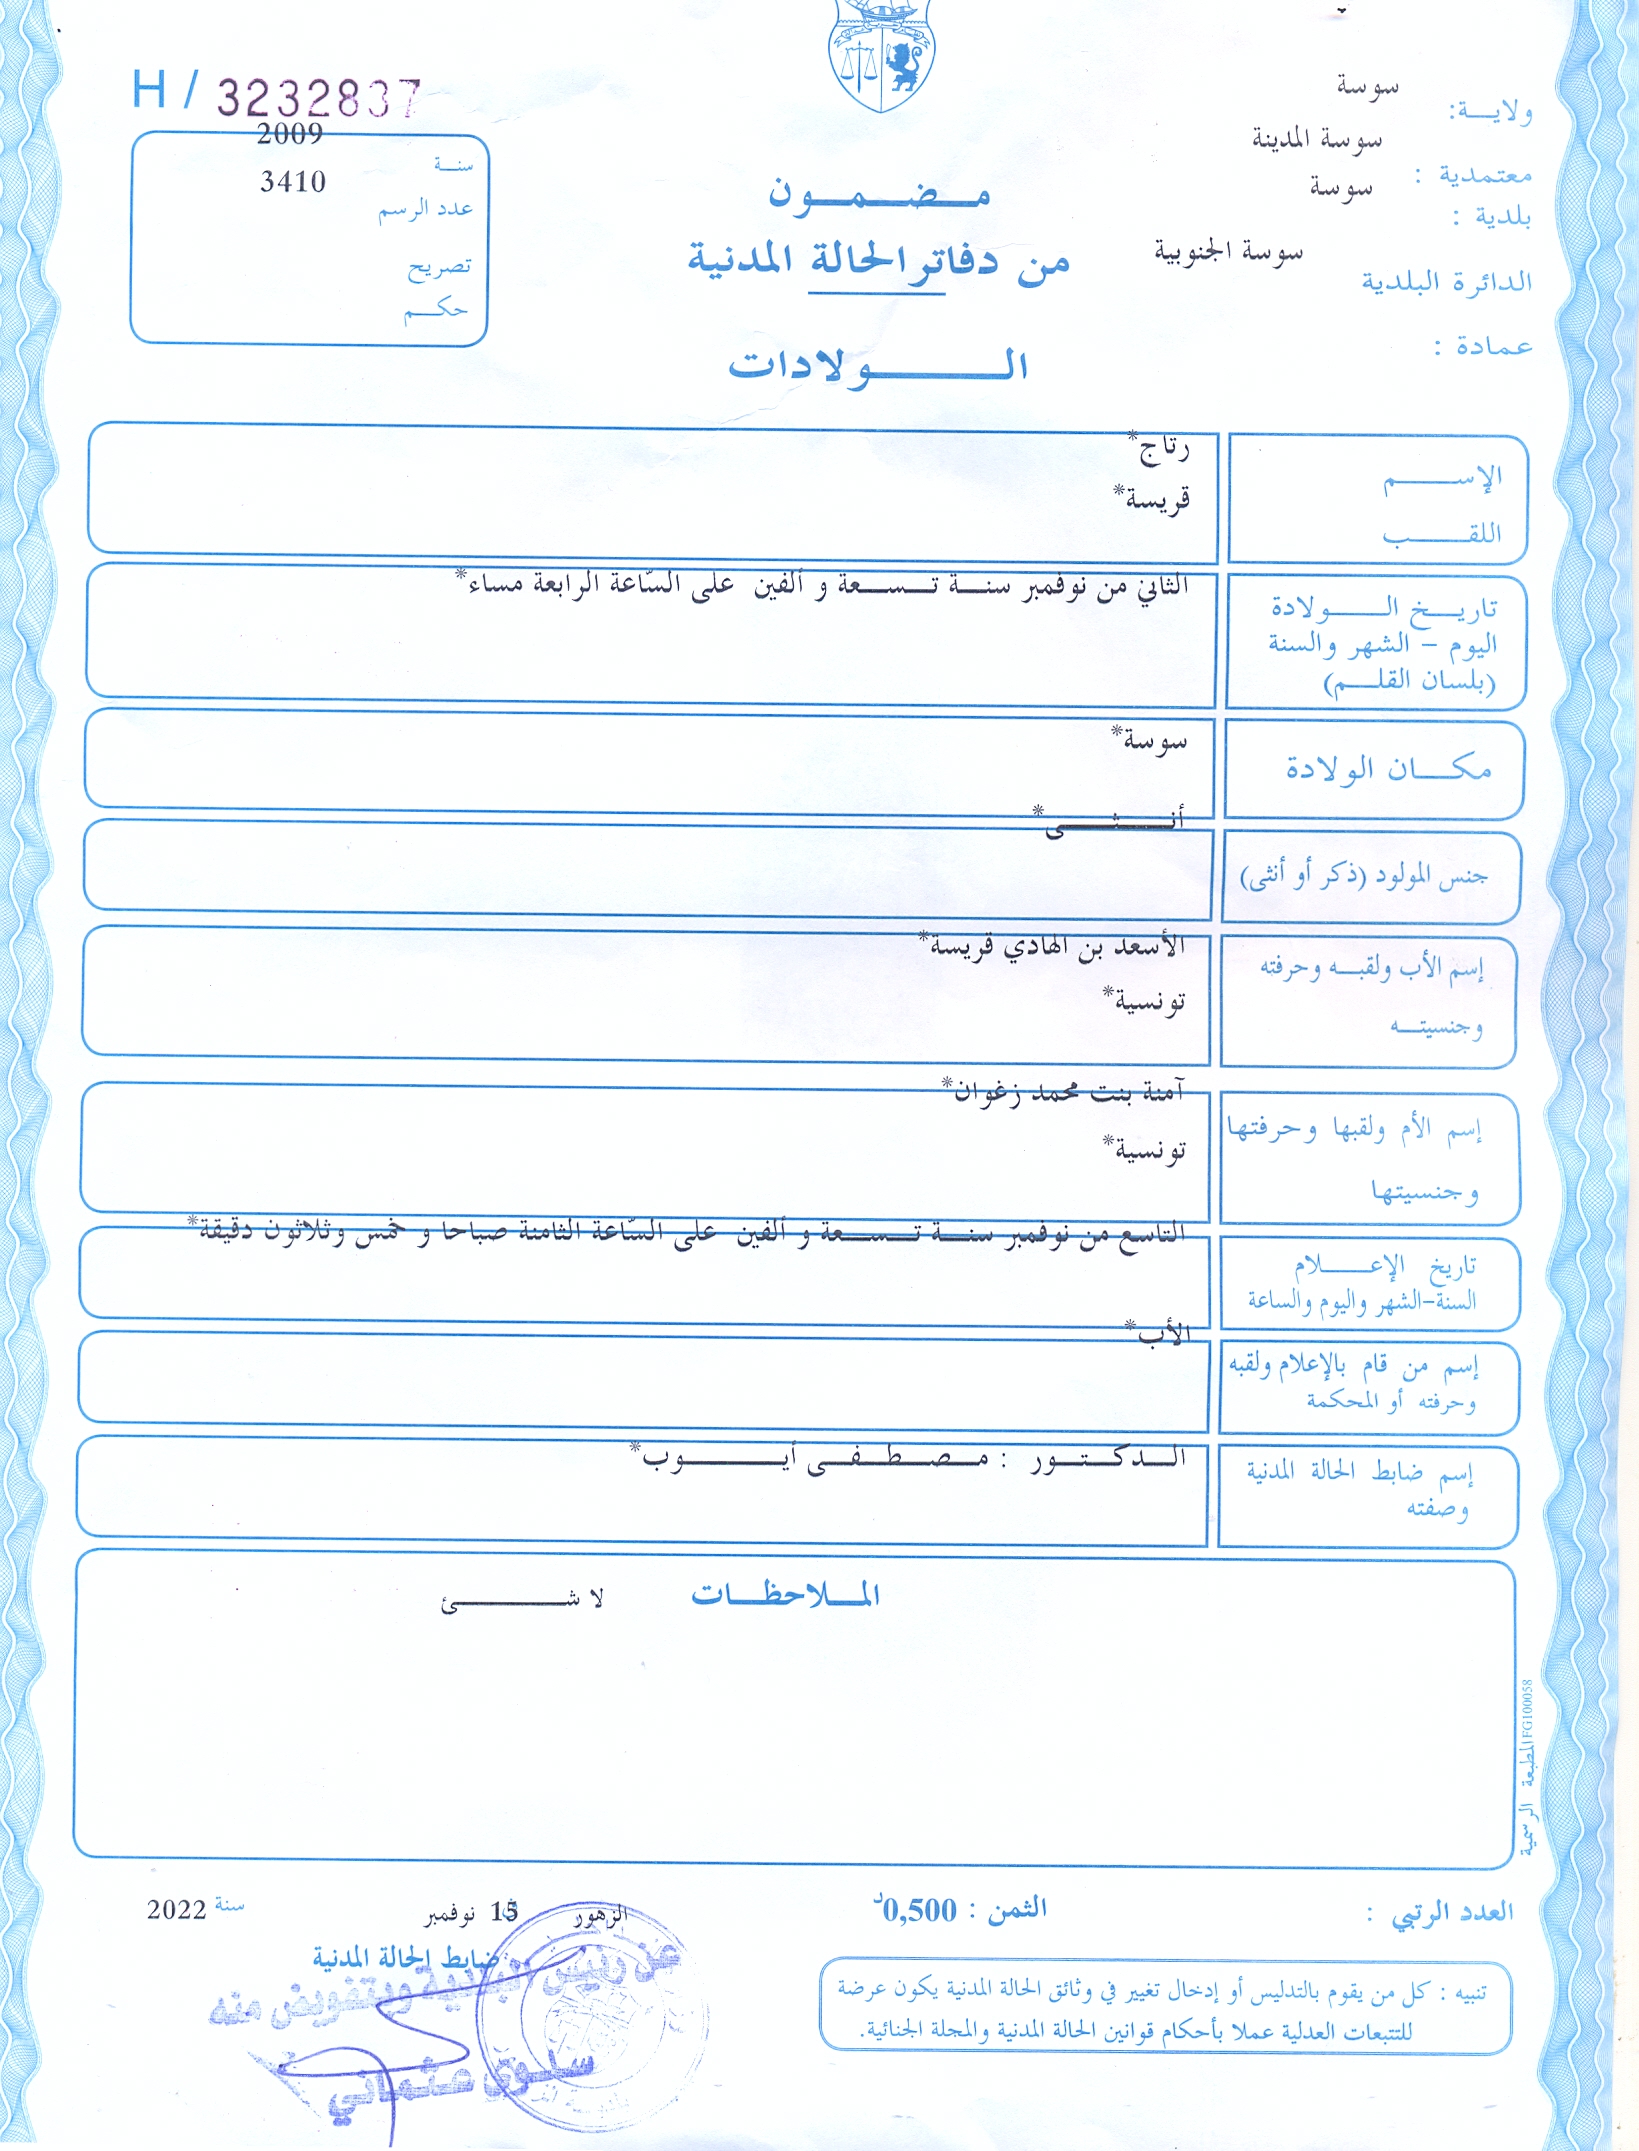 H / 3232837
ولاية: سوسة
معتمدية : سوسة المدينة
بلدية : سوسة
الدائرة البلدية سوسة الجنوبية
عمادة :
مضمون
من دفاتر الحالة المدنية
الولادات
سنة 2009
عدد الرسم 3410
تصريح
حكم
الإسم رتاج*
اللقب قريسة*
تاريخ الولادة الثاني من نوفمبر سنة تسعة و ألفين على السّاعة الرابعة مساء*
اليوم - الشهر والسنة
(بلسان القلم)
مكان الولادة سوسة*
جنس المولود (ذكر أو أنثى) أنثى*
إسم الأب ولقبه وحرفته الأسعد بن الهادي قريسة*
وجنسيته تونسية*
إسم الأم ولقبها وحرفتها آمنة بنت محمد زغوان*
وجنسيتها تونسية*
تاريخ الإعلام التاسع من نوفمبر سنة تسعة و ألفين على السّاعة الثامنة صباحا و خمس وثلاثون دقيقة*
السنة-الشهر واليوم والساعة
إسم من قام بالإعلام ولقبه الأب*
وحرفته أو المحكمة
إسم ضابط الحالة المدنية الدكتور : مصطفى أيوب*
وصفته
الملاحظات لا شئ
المطبعة الرسمية FG100058
العدد الرتبي :
الثمن : 0,500د
الزهور 15 نوفمبر سنة 2022
ضابط الحالة المدنية
عن رئيس البلدية وبتفويض منه
سلوى عثماني
تنبيه : كل من يقوم بالتدليس أو إدخال تغيير في وثائق الحالة المدنية يكون عرضة
للتتبعات العدلية عملا بأحكام قوانين الحالة المدنية والمجلة الجنائية.